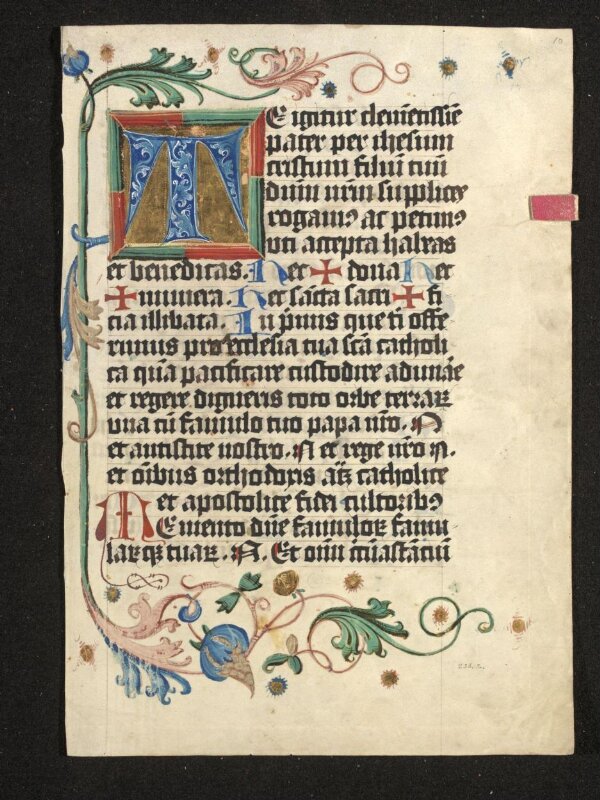 TE igitur clementissīe
pater per ihesum
cristum filiū tuū
dn̄m nr̄m supplices
rogamꝰ ac petimꝰ
vti accepta habeas
et benedicas. Hec + dona Hec
+ munera. Hec sācta sacri + fi
cia illibata. In p̄mis que ti offe
rimus pro ecclesia tua scā catholi
ca quā pacificare custodire adunāe
et regere digneris toto orbe terraꝝ
vna cū famulo tuo papa nr̄o. N
et antistite nostro. N et rege nr̄o N.
et oībus orthodoxis atꝫ catholice
et apostolice fidei cultoribꝰ
MEmento dn̄e famuloꝝ famu
larꝙ tuaꝝ. N. Et oīm circūastāciū